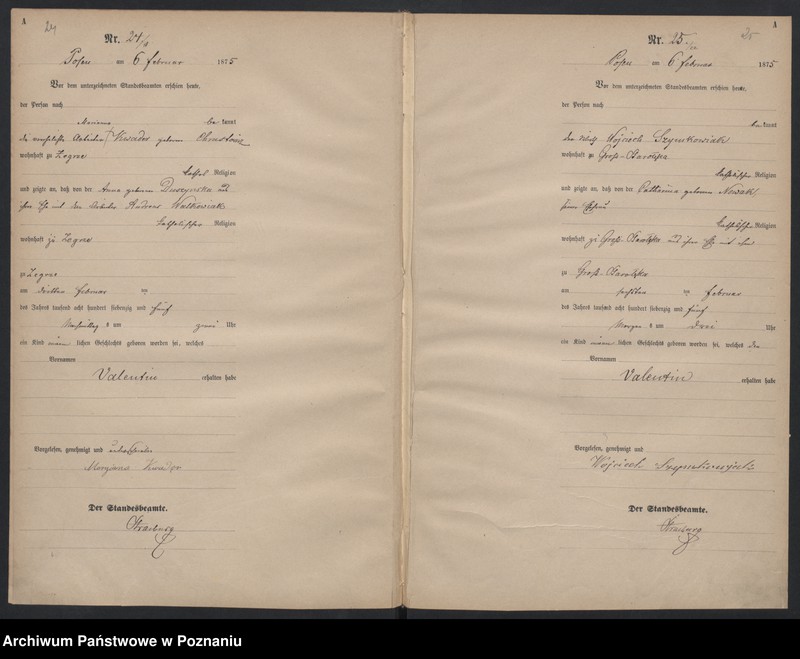 A
24
Nr. 24
Posen am 6 Februar 1875
Vor dem unterzeichneten Standesbeamten erschien heute,
der Person nach
Marianna be kannt
die verehelichte Arbeiter Kwader geborene
wohnhaft zu Zegrze
kathol Religion
und zeigte an, daß von der Anna geborene Duszynska und
Andreas Walkowiak
katholischer Religion
wohnhaft zu Zegrze
zu Zegrze
am dritten Februar
des Jahres tausend acht hundert siebenzig und fünf
Nachmittag s um zwei Uhr
ein Kind männ lichen Geschlechts geboren worden sei, welches
Vornamen
Valentin erhalten habe
Vorgelesen, genehmigt und unterschrieben
Maryanna Kwader
Der Standesbeamte.
A
25
Nr. 25
Posen am 6 Februar 1875
Vor dem unterzeichneten Standesbeamten erschien heute,
der Person nach
be kannt
der Wojciech Szymkowiak
wohnhaft zu Groß-Starolenka
katholischer Religion
und zeigte an, daß von der Catharina geborene Nowak
seiner Ehefrau
katholischer Religion
wohnhaft zu Groß-Starolenka
zu Groß-Starolenka
am sechsten Februar
des Jahres tausend acht hundert siebenzig und fünf
Morgen s um drei Uhr
ein Kind männ lichen Geschlechts geboren worden sei, welches den
Vornamen
Valentin erhalten habe
Vorgelesen, genehmigt und
Wojciech
Der Standesbeamte.
Archiwum Państwowe w Poznaniu